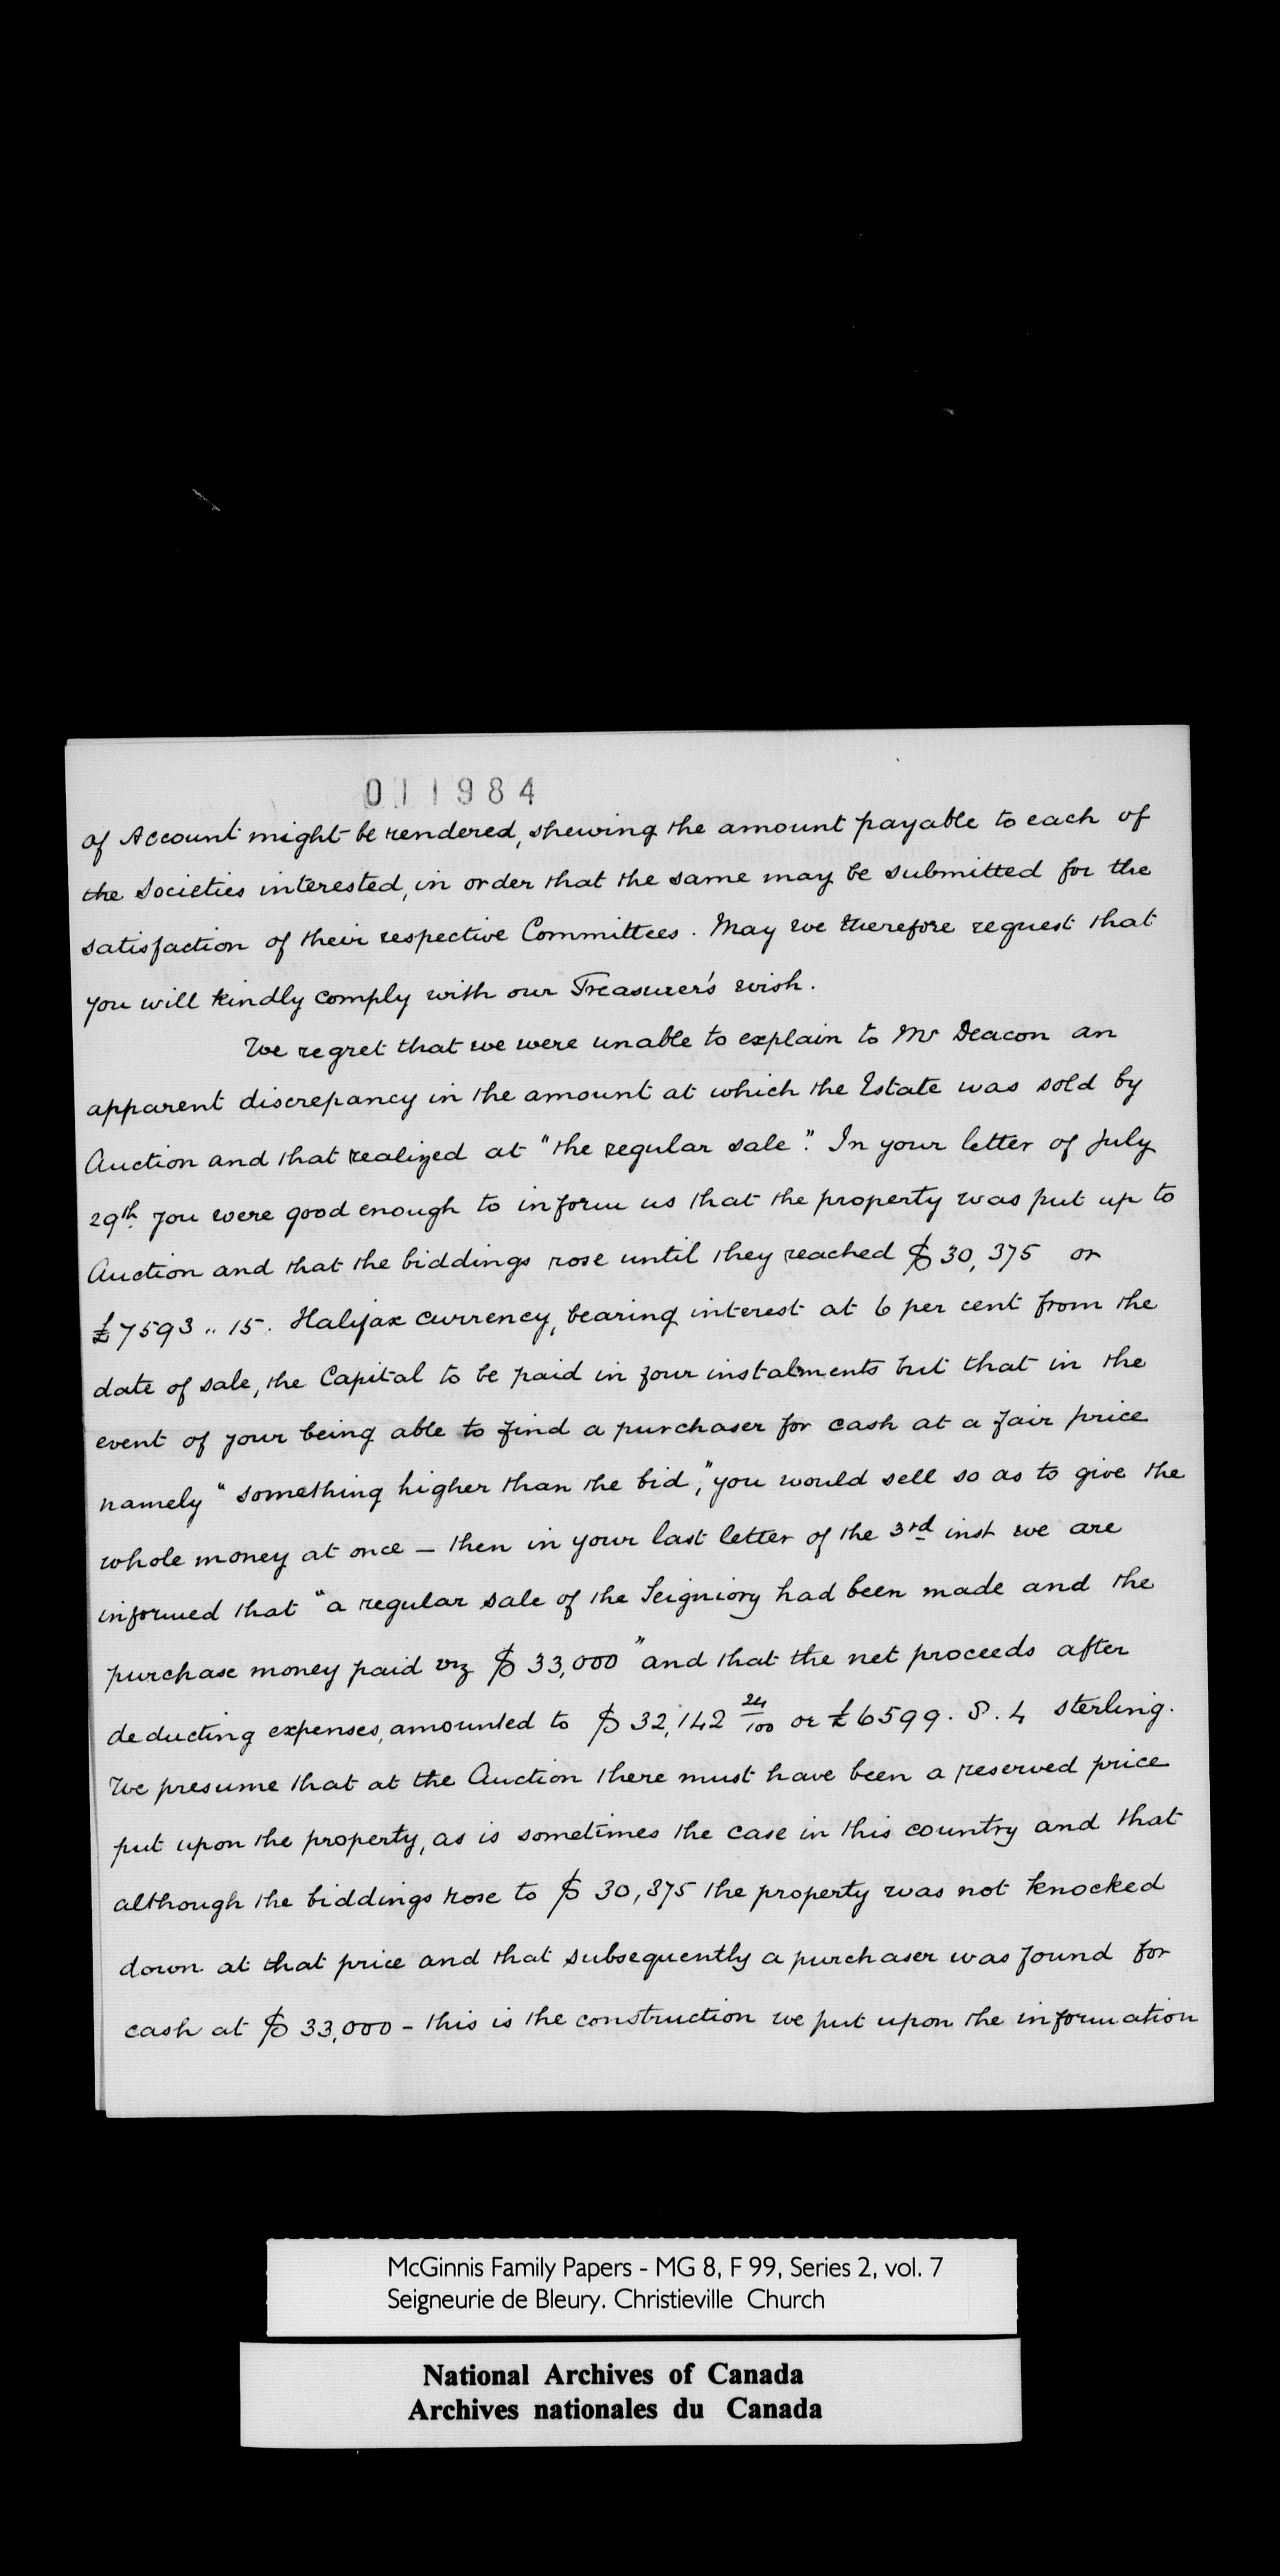 011984
of Account might be rendered, shewing the amount payable to each of
the Societies interested, in order that the same may be submitted for the
satisfaction of their respective Committees. May we therefore request that
you will kindly comply with our Treasurer's wish.
We regret that we were unable to explain to Mr Deacon an
apparent discrepancy in the amount at which the Estate was sold by
Auction and that realized at "the regular sale". In your letter of July
29th you were good enough to inform us that the property was put up to
Auction and that the biddings rose until they reached $30,375 or
£7593 .. 15. Halifax currency, bearing interest at 6 per cent from the
date of sale, the Capital to be paid in four instalments but that in the
event of your being able to find a purchaser for cash at a fair price
namely "something higher than the bid," you would sell so as to give the
whole money at once – then in your last letter of the 3rd inst we are
informed that "a regular sale of the Seigniory had been made and the
purchase money paid viz $33,000" and that the net proceeds after
deducting expenses, amounted to $32,142 24/100 or £6599. 8. 4 sterling.
We presume that at the Auction there must have been a reserved price
put upon the property, as is sometimes the case in this country and that
although the biddings rose to $30,375 the property was not knocked
down at that price and that subsequently a purchaser was found for
cash at $33,000 – this is the construction we put upon the information
McGinnis Family Papers - MG 8, F 99, Series 2, vol. 7
Seigneurie de Bleury. Christieville Church
National Archives of Canada
Archives nationales du Canada